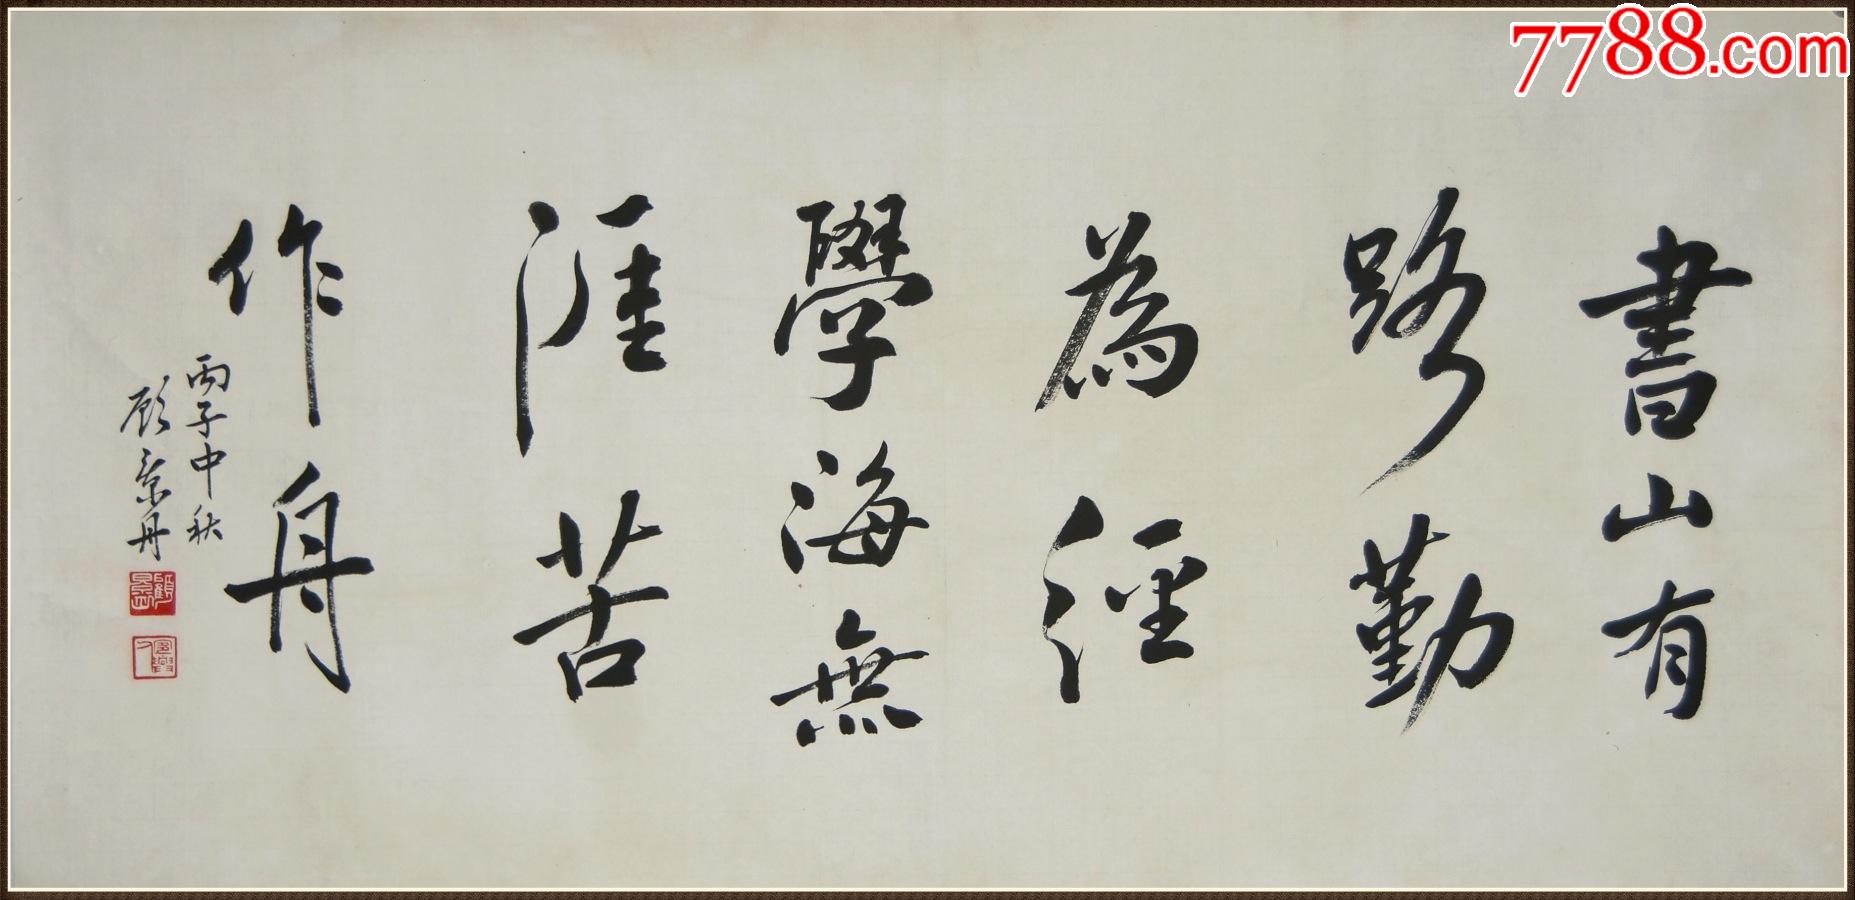 7788.com
書山有
路勤
為徑
學海無
涯苦
作舟
丙子中秋
顧景舟